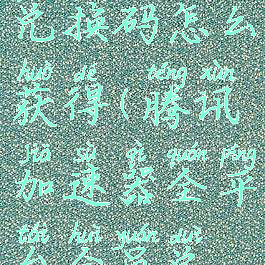 兑换码怎么
huò dé téng xùn
获得(腾讯
jiā sù qì quán píng
加速器全平
tái huì yuán duì